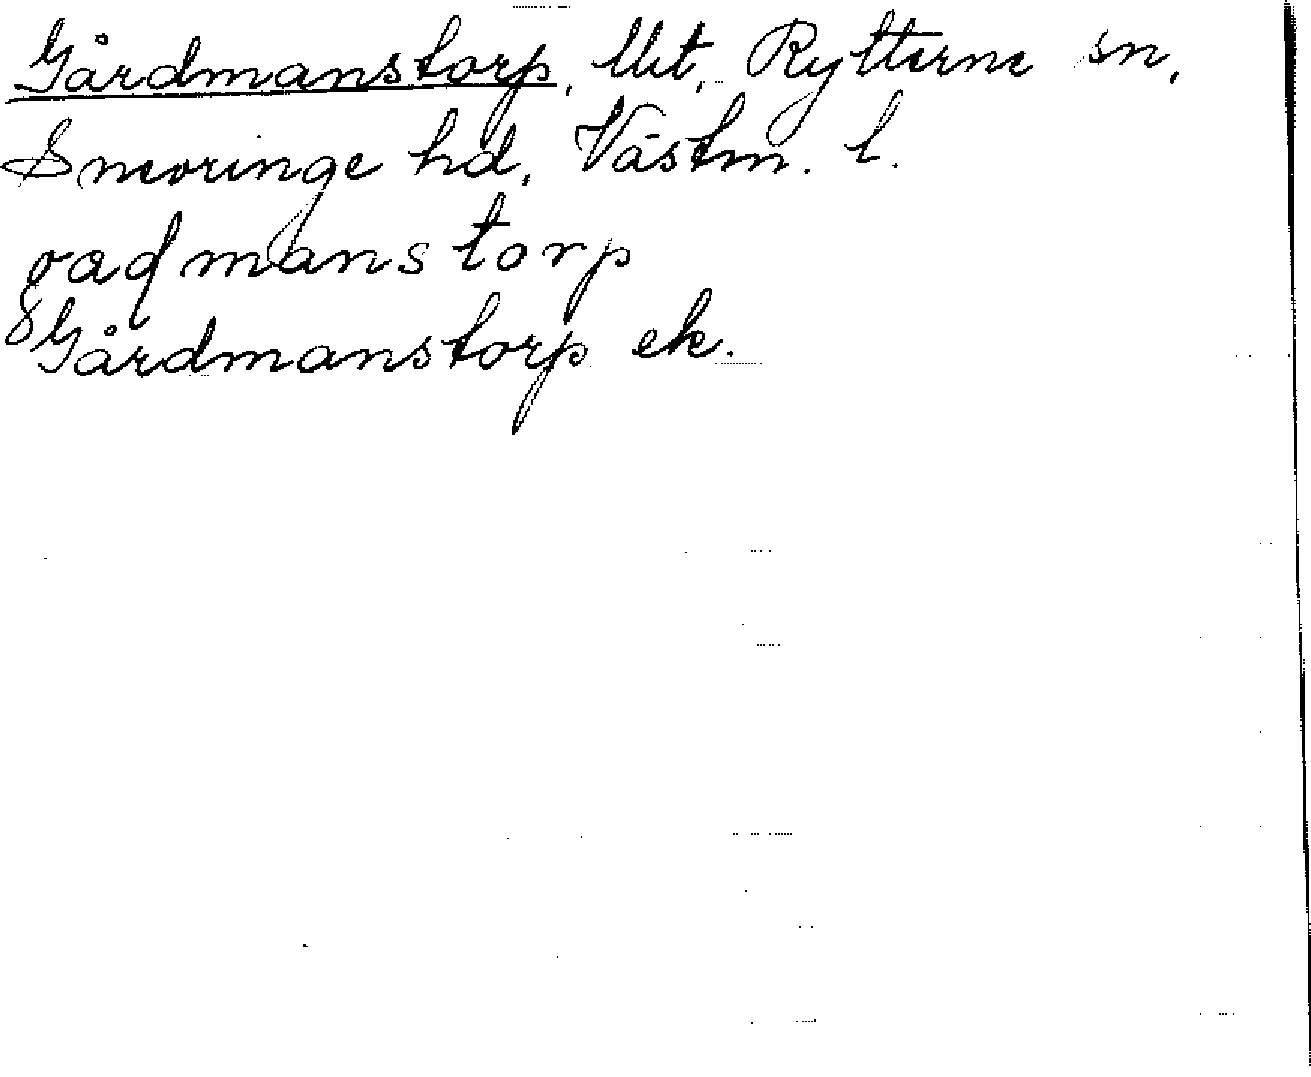 Gårdmanstorp, Utt, Rytterne sn,
Snevringe hd, Västm. l.
Gårdmanstorp ek.